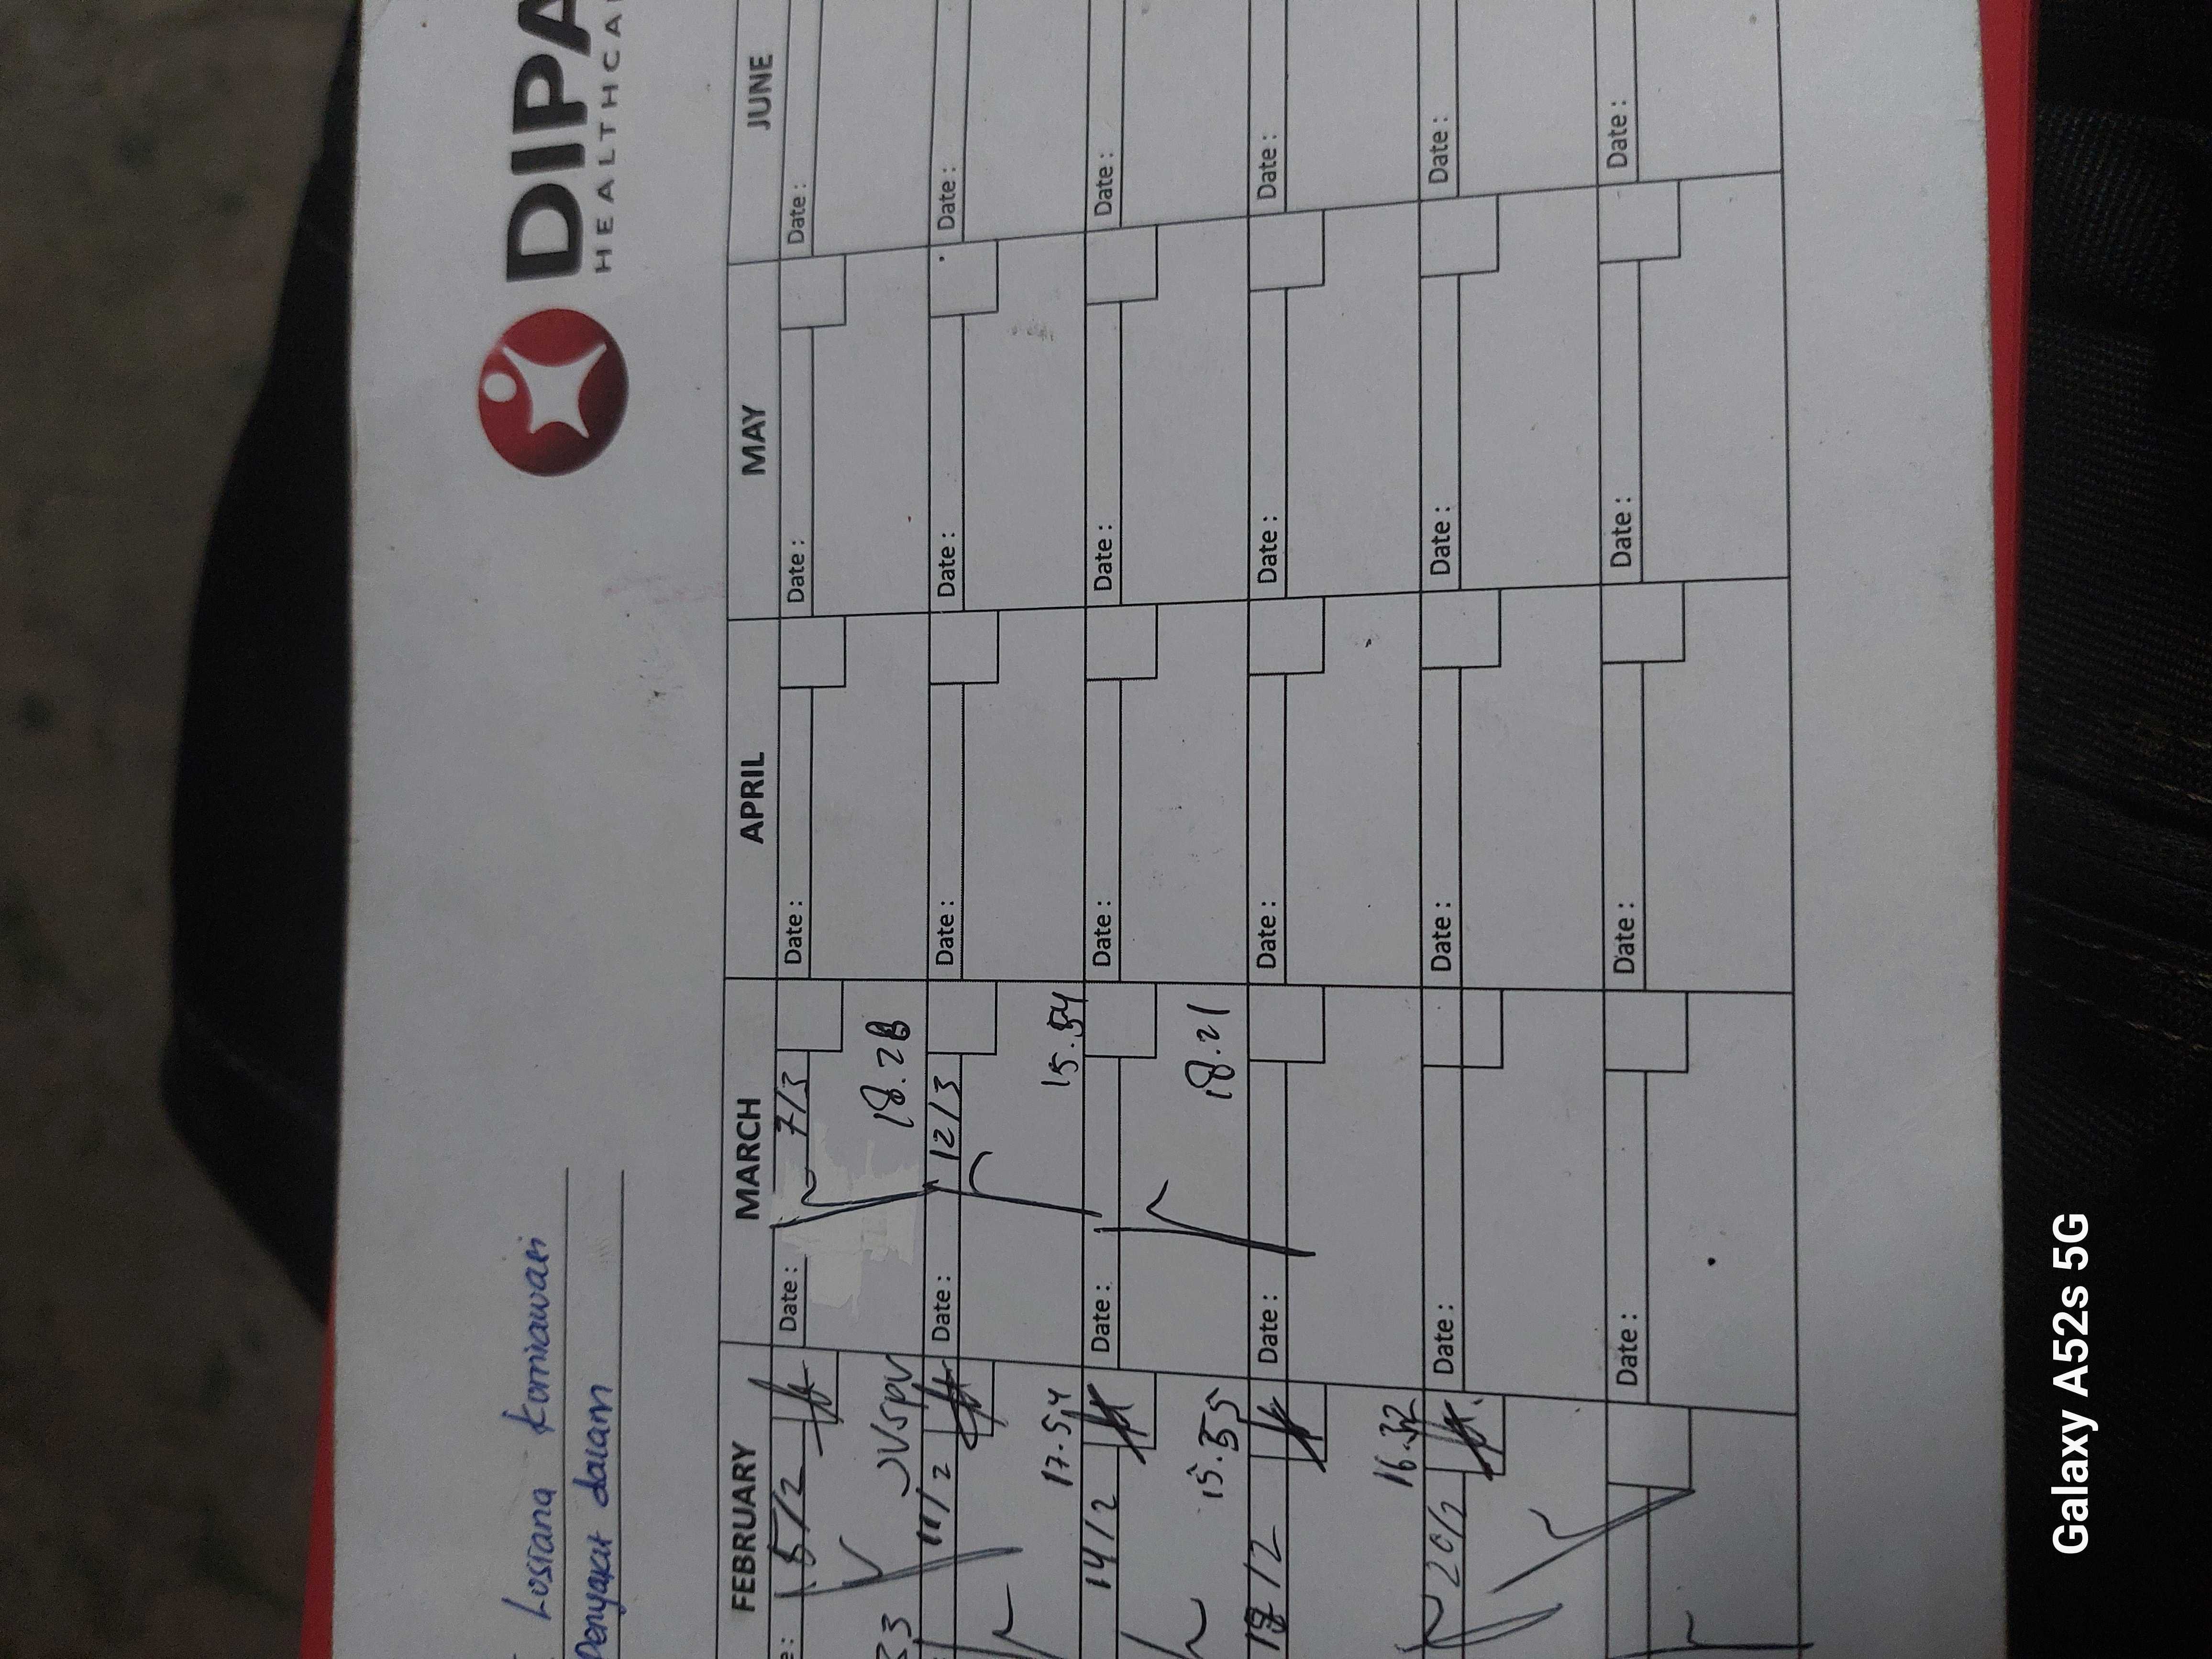 DIPA
HEALTHCA
Lusiana Kurniawati
Penyakit dalam
FEBRUARY MARCH APRIL MAY JUNE
5/2 Date: 7/3 Date: Date: Date:
33 JVSPV 18.28
11/2 Date: 12/3 Date: Date: Date:
17.54 15.54
14/2 Date: Date: Date: Date:
15.55 18.21
18/2 Date: Date: Date: Date:
16.32
20/2 Date: Date: Date: Date:
Date: Date: Date: Date:
Galaxy A52s 5G